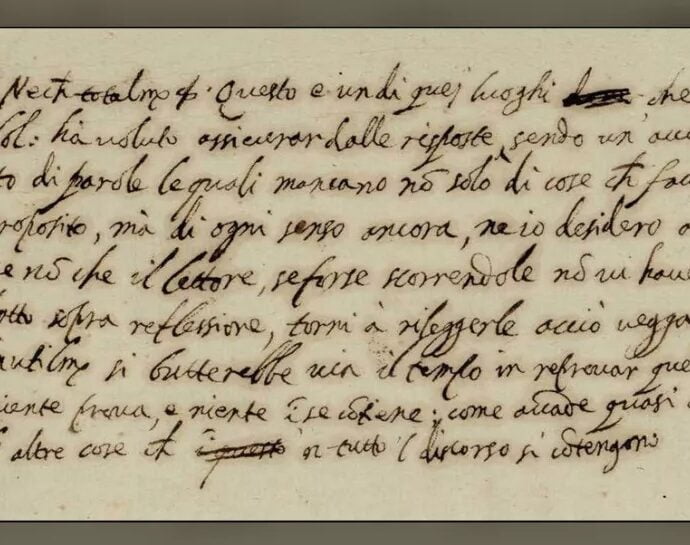 Questo è un di quei luoghi che
Col: hà voluto assicurar dalle risposte, sendo un'acc
to di parole le quali mancano nõ solo di cose cħ fac
roposito, mà di ogni senso ancora, ne io desidero a
e nõ che il lettore, se forse scorrendole nõ vi have
sopra reflessione, torni à rileggerle acciò vegga
si butterebbe via il tempo in reprovar que
niente prova, e niente ĩ se cõtiene; come accade quasi
altre cose cħ ĩ questo ĩ tutto l discorso si cõtengono